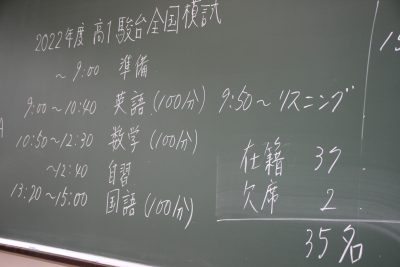 2022年度 高1駿台全国模試
~ 9:00 準備
9:00~10:40 英語 (100分) 9:50~リスニング
10:50~12:30 数学 (100分)
~12:40 自習
13:20~15:00 国語 (100分)
在籍 37
欠席 2
35名